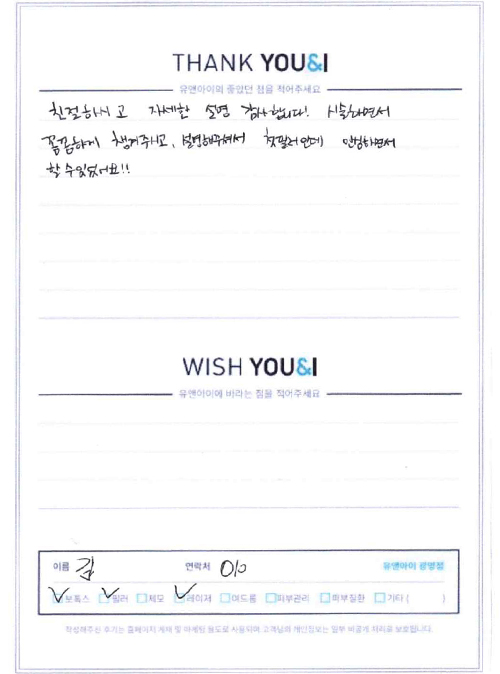 THANK YOU&I
유앤아이의 좋았던 점을 적어주세요
친절하시고 자세한 설명 감사합니다! 시술하면서
꼼꼼하게 챙겨주시고, 설명해주셔서 첫필러인데 안심하면서
할 수 있었어요!!
WISH YOU&I
유앤아이에 바라는 점을 적어주세요
이름 김 연락처 010 유앤아이 광명점
보톡스 필러 제모 레이저 여드름 피부관리 피부질환 기타 ( )
작성해주신 후기는 홈페이지 게재 및 마케팅 용도로 사용되며 고객님의 개인정보는 일부 비공개 처리로 보호됩니다.